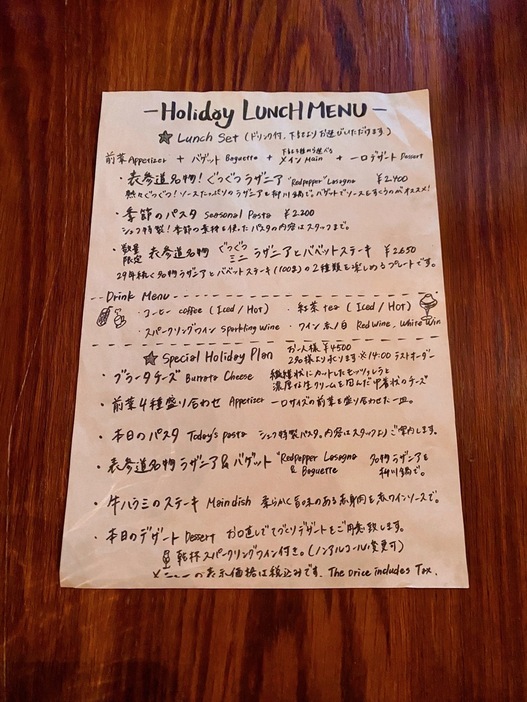 -Holiday LUNCH MENU-
☆ Lunch Set (ドリンク付、下記よりお選びいただけます)
下記3種から選べる
前菜 Appetizer + バゲット Baguette + メイン Main + 一口デザート Dessert
・表参道名物!ぐつぐつラザニア "Redpepper" Lasagna ¥2,400
熱々ぐつぐつ!ソースたっぷりのラザニアを柳川鍋で。バゲットでソースをすくうのがオススメ!
・季節のパスタ Seasonal Pasta ¥2,200
シェフ特製!季節の素材を使ったパスタの内容はスタッフまで。
・数量限定 表参道名物 ぐつぐつミニラザニアとバベットステーキ ¥2,650
29年続く名物ラザニアとバベットステーキ(100g)の2種類を楽しめるプレートです。
Drink Menu
・コーヒー coffee (Iced / Hot) ・紅茶 tea (Iced / Hot)
・スパークリングワイン Sparkling wine ・ワイン 赤/白 Red wine, White Win
☆ Special Holiday Plan お一人様 ¥4500
2名様より承ります ※14:00 ラストオーダー
・ブラータチーズ Burrata Cheese 繊維状にカットしたモッツァレラと
濃厚な生クリームを包んだ巾着状のチーズ
・前菜4種盛り合わせ Appetizer 一口サイズの前菜を盛り合わせた一皿。
・本日のパスタ Today's pasta シェフ特製パスタ。内容はスタッフよりご案内します。
・表参道名物ラザニア&バゲット "Redpepper Lasagna & Baguette 名物ラザニアを柳川鍋で。
・牛ハラミのステーキ Main dish 柔らかく旨味のある赤身肉を赤ワインソースで。
・本日のデザート Dessert お口直しで手づくりデザートをご用意致します。
乾杯スパークリングワイン付き。(ノンアルコール変更可)
メニューの表示価格は税込みです。The price includes Tax.